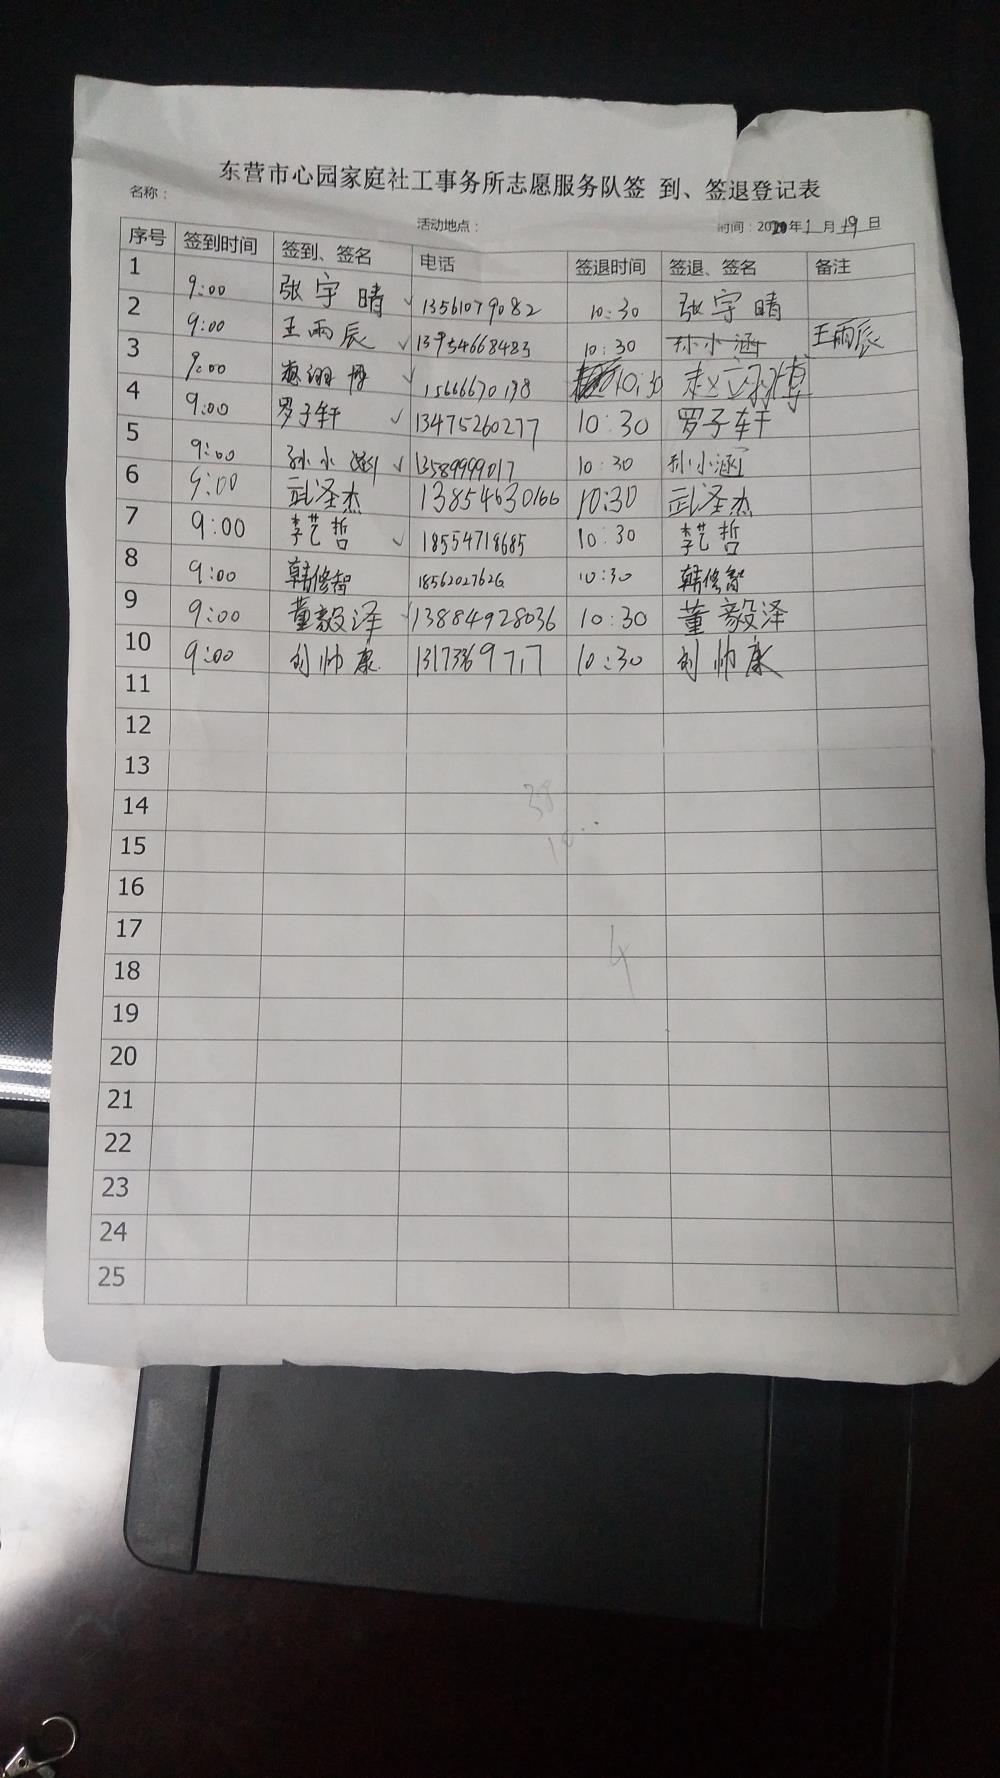 东营市心园家庭社工事务所志愿服务队签 到、签退登记表
名称： 活动地点： 时间：2020年1月19日
序号 签到时间 签到、签名 电话 签退时间 签退、签名 备注
1 9:00 张宇晴 ✓ 13561079082 10:30 张宇晴
2 9:00 王雨辰 ✓ 13954668483 10:30 孙小涵 王雨辰
3 9:00 ✓ 15666670198 10:30 赵立翊博
4 9:00 罗子轩 ✓ 13475260277 10:30 罗子轩
5 9:00 孙小涵 ✓ 13589999017 10:30 孙小涵
6 9:00 武泽杰 13854630166 10:30 武泽杰
7 9:00 李艺哲 ✓ 18554718685 10:30 李艺哲
8 9:00 韩修智 18562027626 10:30 韩修智
9 9:00 董毅泽 ✓ 13884928036 10:30 董毅泽
10 9:00 刘帅康 10:30 刘帅康
11
12
13
14 38
15
16
17
18 4
19
20
21
22
23
24
25